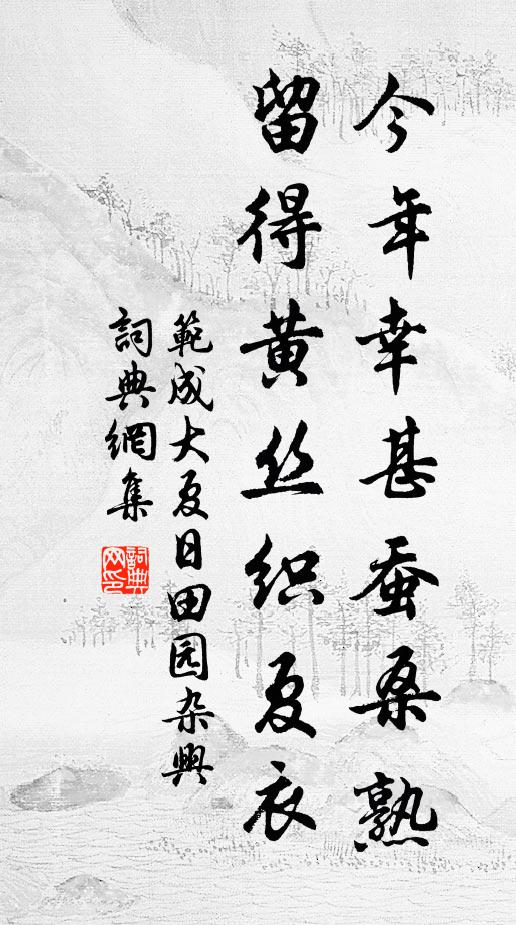 今年幸甚蚕桑熟
留得黄丝织夏衣
範成大夏日田园杂興
詞典網集
詞典网印